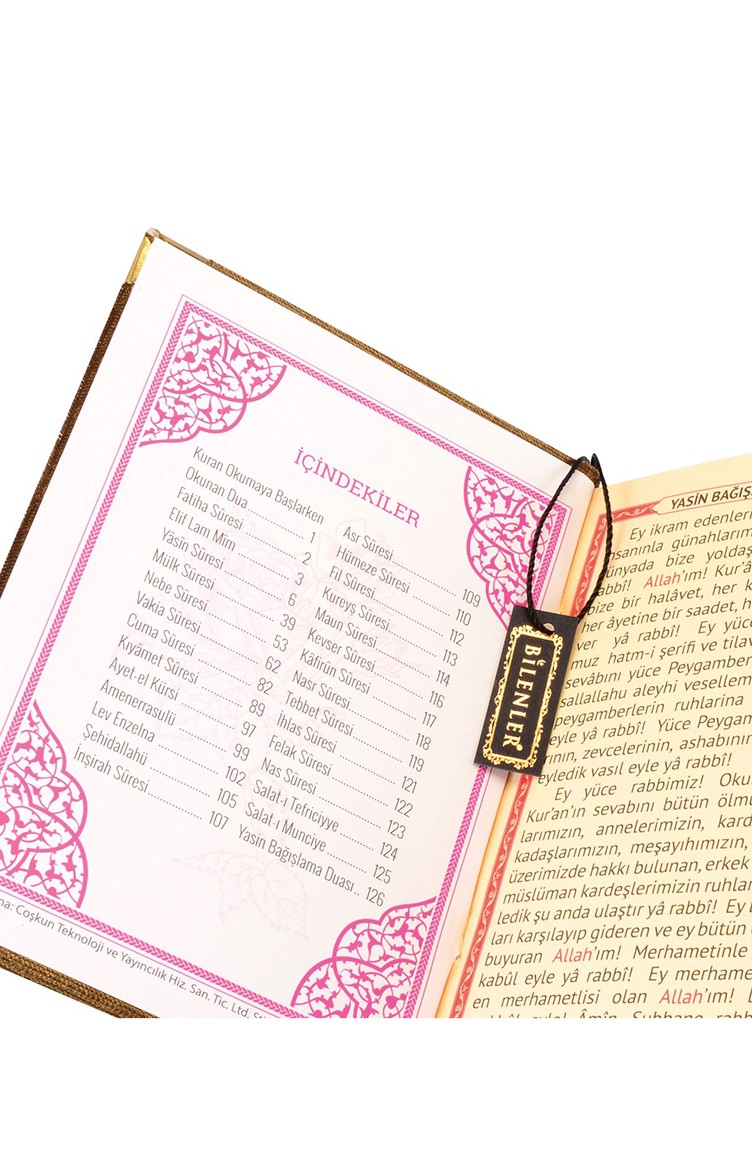 İÇİNDEKİLER
Kuran Okumaya Başlarken
Okunan Dua 1
Fatiha Sûresi 2
Elif Lam Mîm 3
Yâsîn Sûresi 6
Mülk Sûresi 39
Nebe Sûresi 53
Vakia Sûresi 62
Cuma Sûresi 82
Kıyâmet Sûresi 89
Ayet-el Kürsi 97
Amenerrasulü 99
Lev Enzelna 102
Şehidallahü 105
İnşirah Sûresi 107
Asr Sûresi 109
Hümeze Sûresi 110
Fil Sûresi 112
Kureyş Sûresi 113
Maun Sûresi 114
Kevser Sûresi 116
Kâfirûn Sûresi 117
Nasr Sûresi 118
Tebbet Sûresi 119
İhlas Sûresi 121
Felak Sûresi 122
Nas Sûresi 123
Salat-ı Tefriciyye 124
Salat-ı Munciye 125
Yasin Bağışlama Duası 126
Coşkun Teknoloji ve Yayıncılık Hiz. San. Tic. Ltd.
BİLENLER
YASİN BAĞIŞ
Ey ikram edenleri
günahlarım
bize yoldaş
rabbî! Allah'ım! Kur'â
bize bir halâvet, her k
her âyetine bir saadet, h
yâ rabbî! Ey yüce
hatm-i şerifi ve tila
sevabını yüce Peygamber
sallallahu aleyhi vesellem
peygamberlerin ruhlarına
eyle yâ rabbî! Yüce Peygam
zevcelerinin, ashabının
eyledik vasıl eyle yâ rabbî!
Ey yüce rabbimiz! Oku
Kur'an'ın sevabını bütün ölmü
larımızın, annelerimizin, kard
kadaşlarımızın, meşayıhımızın,
üzerimizde hakkı bulunan, erkek
müslüman kardeşlerimizin ruhlar
ledik şu anda ulaştır yâ rabbî! Ey
ları karşılayıp gideren ve ey bütün
buyuran Allah'ım! Merhametinle
kabûl eyle yâ rabbî! Ey merhame
en merhametlisi olan Allah'ım!